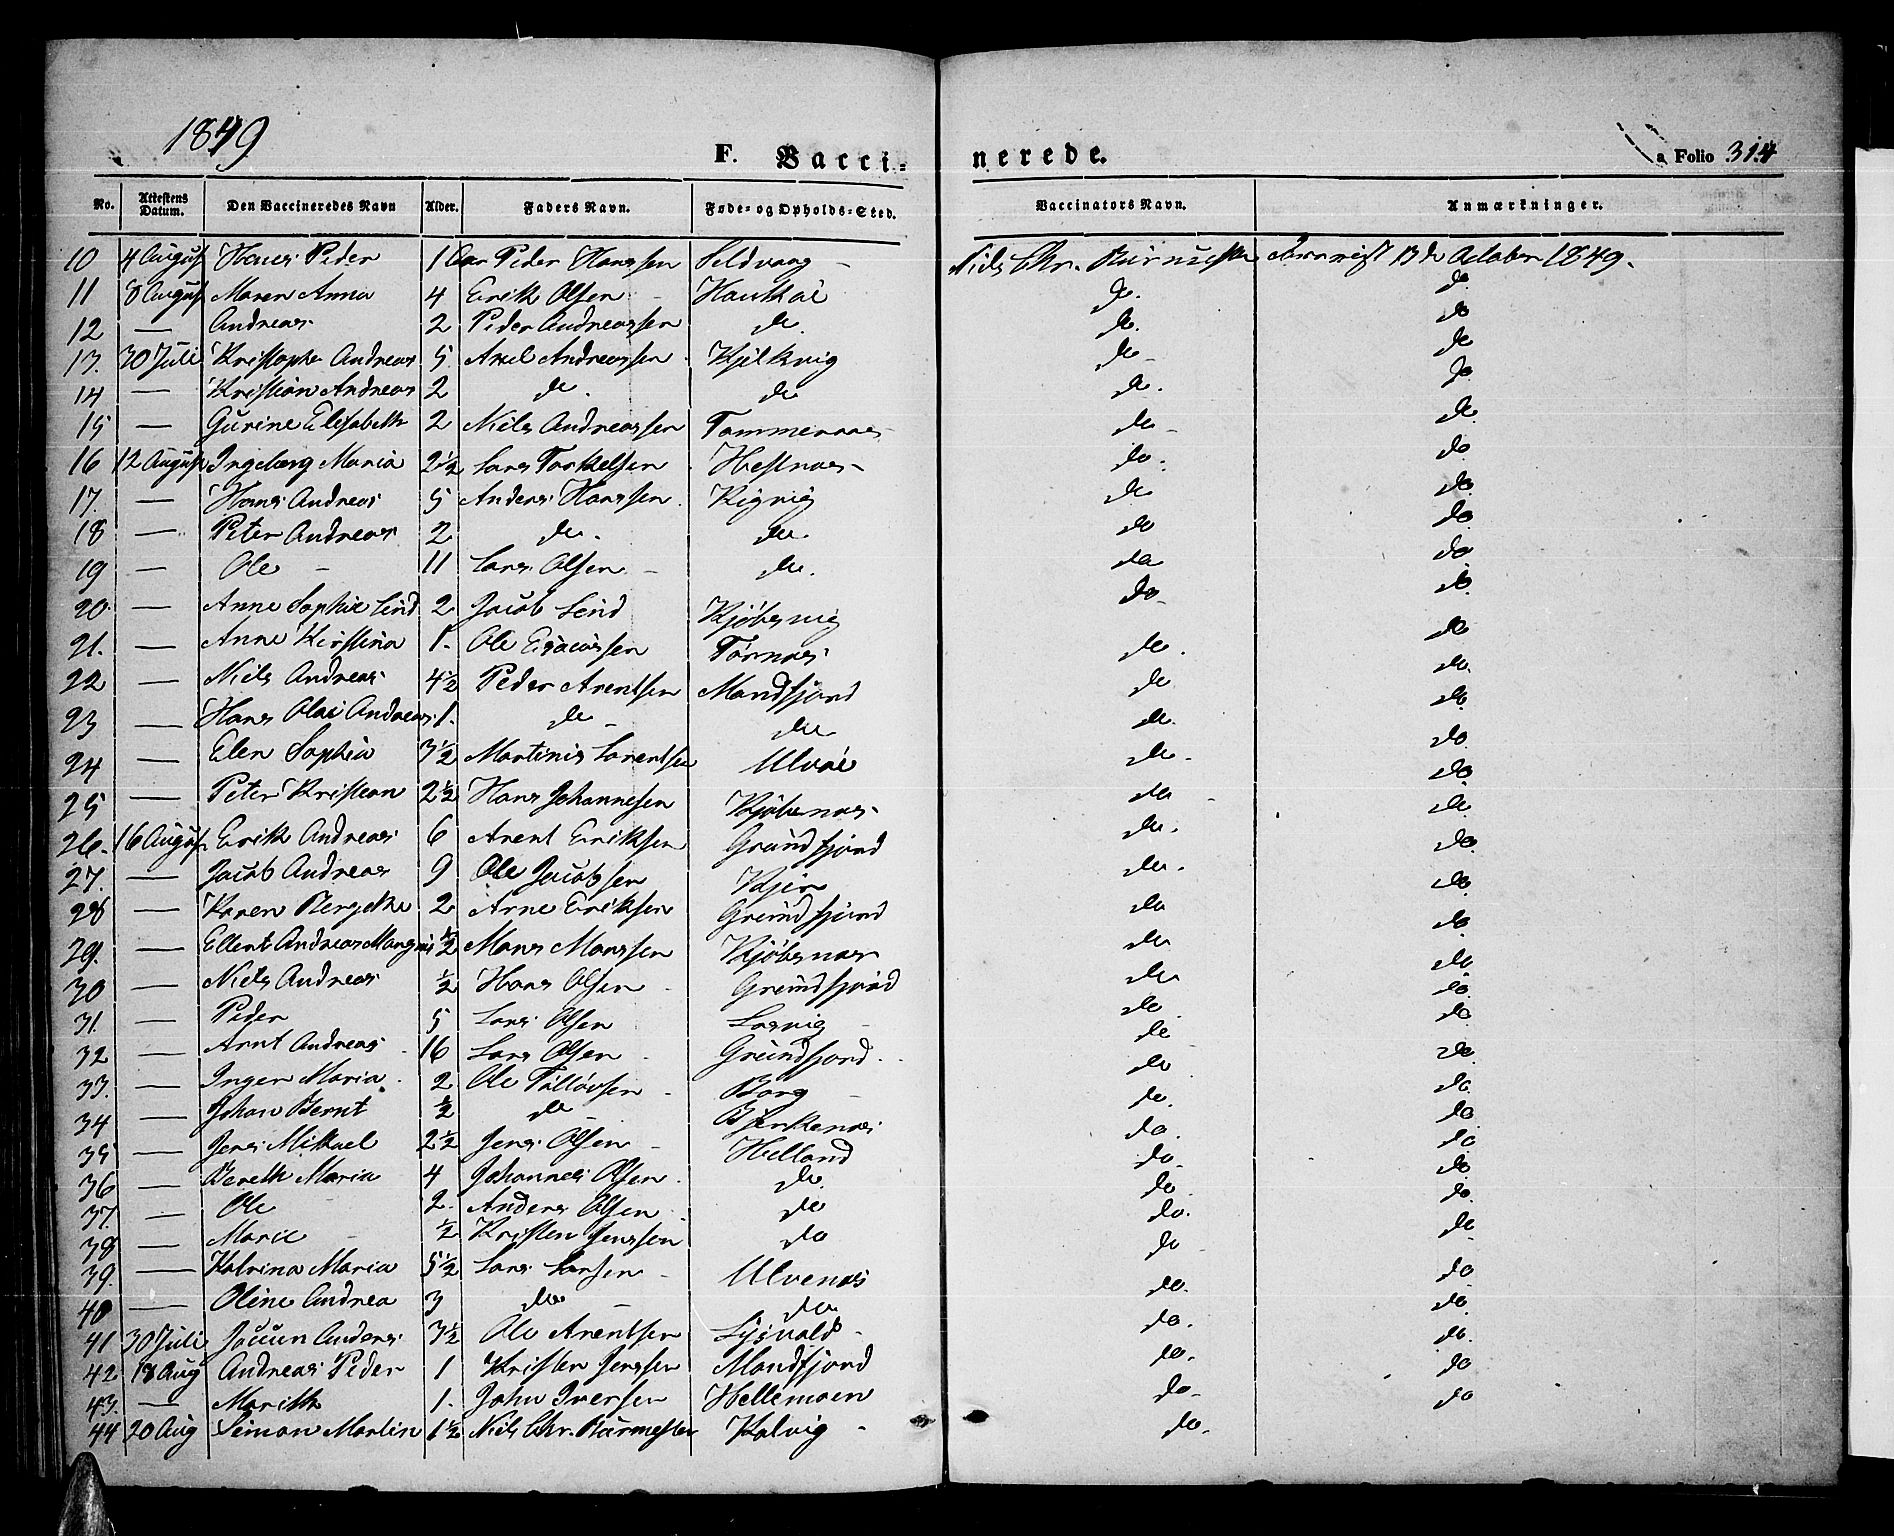 1849
F. Vacci= nerede.
a Folio 314
No. Attestens Datum. Den Vaccineredes Navn Alder. Faders Navn. Føde- og Opholds-Sted. Vaccinators Navn. Anmærkninger.
10 4 August Hans Peder 1 Aar Peder Hanssen Seldvaag Niels Chr. October 1849.
11 8 August Maren Anna 4 Erik Olsen Haukøi do. do
12 — Andreas 2 Peder Andreassen do. do. do
13. 30 Juli Kristopher Andreas 5. Axel Andreassen Kjelkvig do do
14 — Kristian Andreas 2 do. do do. do
15 — Gurine Elisabeth 2 Niels Andreassen Tømmeraas do do
16 12 August Ingeborg Maria 2½ Lars Torkelsen Hestnæs do. do
17. — Hans Andreas 5 Anders Hanssen do do
18 — Peter Andreas 2 do. do. do do
19 — Ole 11 Lars Olsen do. do do
20 — Anne Sophie Lind 2 Jacob Lind Kjøbsvig do do
21. — Anne Kirstina 1. Ole Tørnæs do. do
22 — Niels Andreas 4½ Peder Arentsen Mandfjord do do.
23 — Hans Olai Andreas 1. do do do. do
24 — Elen Sophia 3½ Martinis Lorentsen Ulvøe do. do
25 — Peter Kristian 2½ Hans Johannesen Kjøbsnæs do do
26. 16 August Erik Andreas 6 Arent Eriksen Grundfjord do. do
27. — Jacob Andreas 9 Ole Jacobsen Kjør do. do
28 — Karen Bergethe 2 Arne Eriksen Grundfjord do do
29. — Ellert Andreas Mangnis ½ Mons Monssen Kjøbsnæs do do
30 — Niels Andreas ½ Hans Olsen Grundfjord do do
31. — Peder 5 Lars Olsen do do
32 — Arnt Andreas 16 Lars Olsen Grundfjord do do
33. — Inger Maria 2 Ole Tollovsen Borg do do
34 — Johan Bernt ½ do Bjerkenæs do. do
35 — Jens Mikael 2½ Jens Olsen Helland do. do
36 — Bereth Maria 4 Johannes Olsen do. do. do
37. — Ole 2. Anders Olsen do do do.
38 — Marie ½ Kristen Jenssen do do. do
39. — Katrina Maria 5½ Lars Larsen Ulvenæs do do
40 — Oline Andrea 3 do do do. do.
41 30 Juli Anders 3½ Ole Arentsen Lysvold do. do.
42 18 Aug Andreas Peder 1 Kristen Jenssen Mandfjord do. do
43. — Marith 1. John Iversen Hellemoen do. do
44 20 Aug Simon Martin 1½ Niels Chr. Burmester Kalvig do.